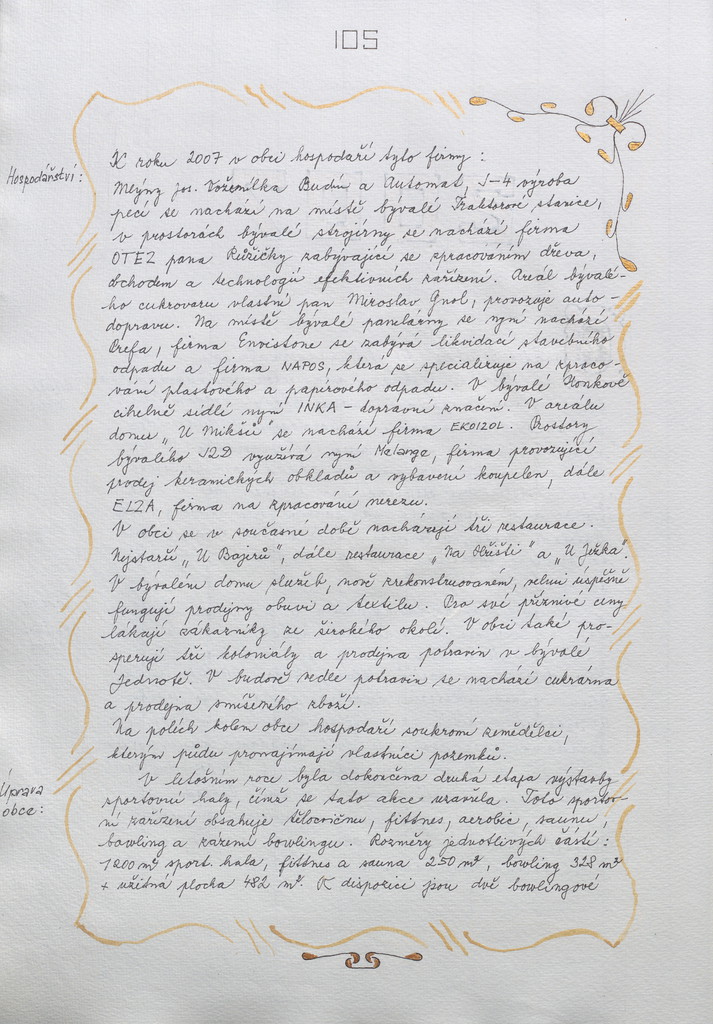 105
Hospodářství:
K roku 2007 v obci hospodaří tyto firmy:
Mlýny Jos. Voženílka Budín a Automat, J-4 výroba
pecí se nachází na místě bývalé Traktorové stanice,
v prostorách bývalé strojírny se nachází firma
OTEZ pana Růžičky zabývající se zpracováním dřeva,
obchodem a technologií efektivních zařízení. Areál bývalé-
ho cukrovaru vlastní pan Miroslav Gnol, provozuje auto-
dopravu. Na místě bývalé panelárny se nyní nachází
Prefa, firma Envistone se zabývá likvidací stavebního
odpadu a firma NAPOS, která se specializuje na zpraco-
vání plastového a papírového odpadu. V bývalé Plonkově
cihelně sídlí nyní INKA - dopravní značení. V areálu
domu „U Mikšů" se nachází firma EKOIZOL. Prostory
bývalého JZD využívá nyní Melange, firma provozující
prodej keramických obkladů a vybavení koupelen, dále
ELZA, firma na zpracování nerezu.
V obci se v současné době nacházejí tři restaurace.
Nejstarší „U Bajerů", dále restaurace „Na Hřišti" a „U Ježka".
V bývalém domu služeb, nově zrekonstruovaném, velmi úspěšně
fungují prodejny obuvi a textilu. Pro své příznivé ceny
lákají zákazníky ze širokého okolí. V obci také pro-
sperují tři koloniály a prodejna potravin v bývalé
Jednotě. V budově vedle potravin se nachází cukrárna
a prodejna smíšeného zboží.
Na polích kolem obce hospodaří soukromí zemědělci,
kterým půdu pronajímají vlastníci pozemků.
Úprava
obce:
V letošním roce byla dokončena druhá etapa výstavby
sportovní haly, čímž se tato akce uzavřela. Toto sportov-
ní zařízení obsahuje tělocvičnu, fittnes, aerobic, saunu,
bowling a zázemí bowlingu. Rozměry jednotlivých částí:
1200 m² sport. hala, fittnes a sauna 250 m², bowling 328 m²
+ užitná plocha 482 m². K dispozici jsou dvě bowlingové